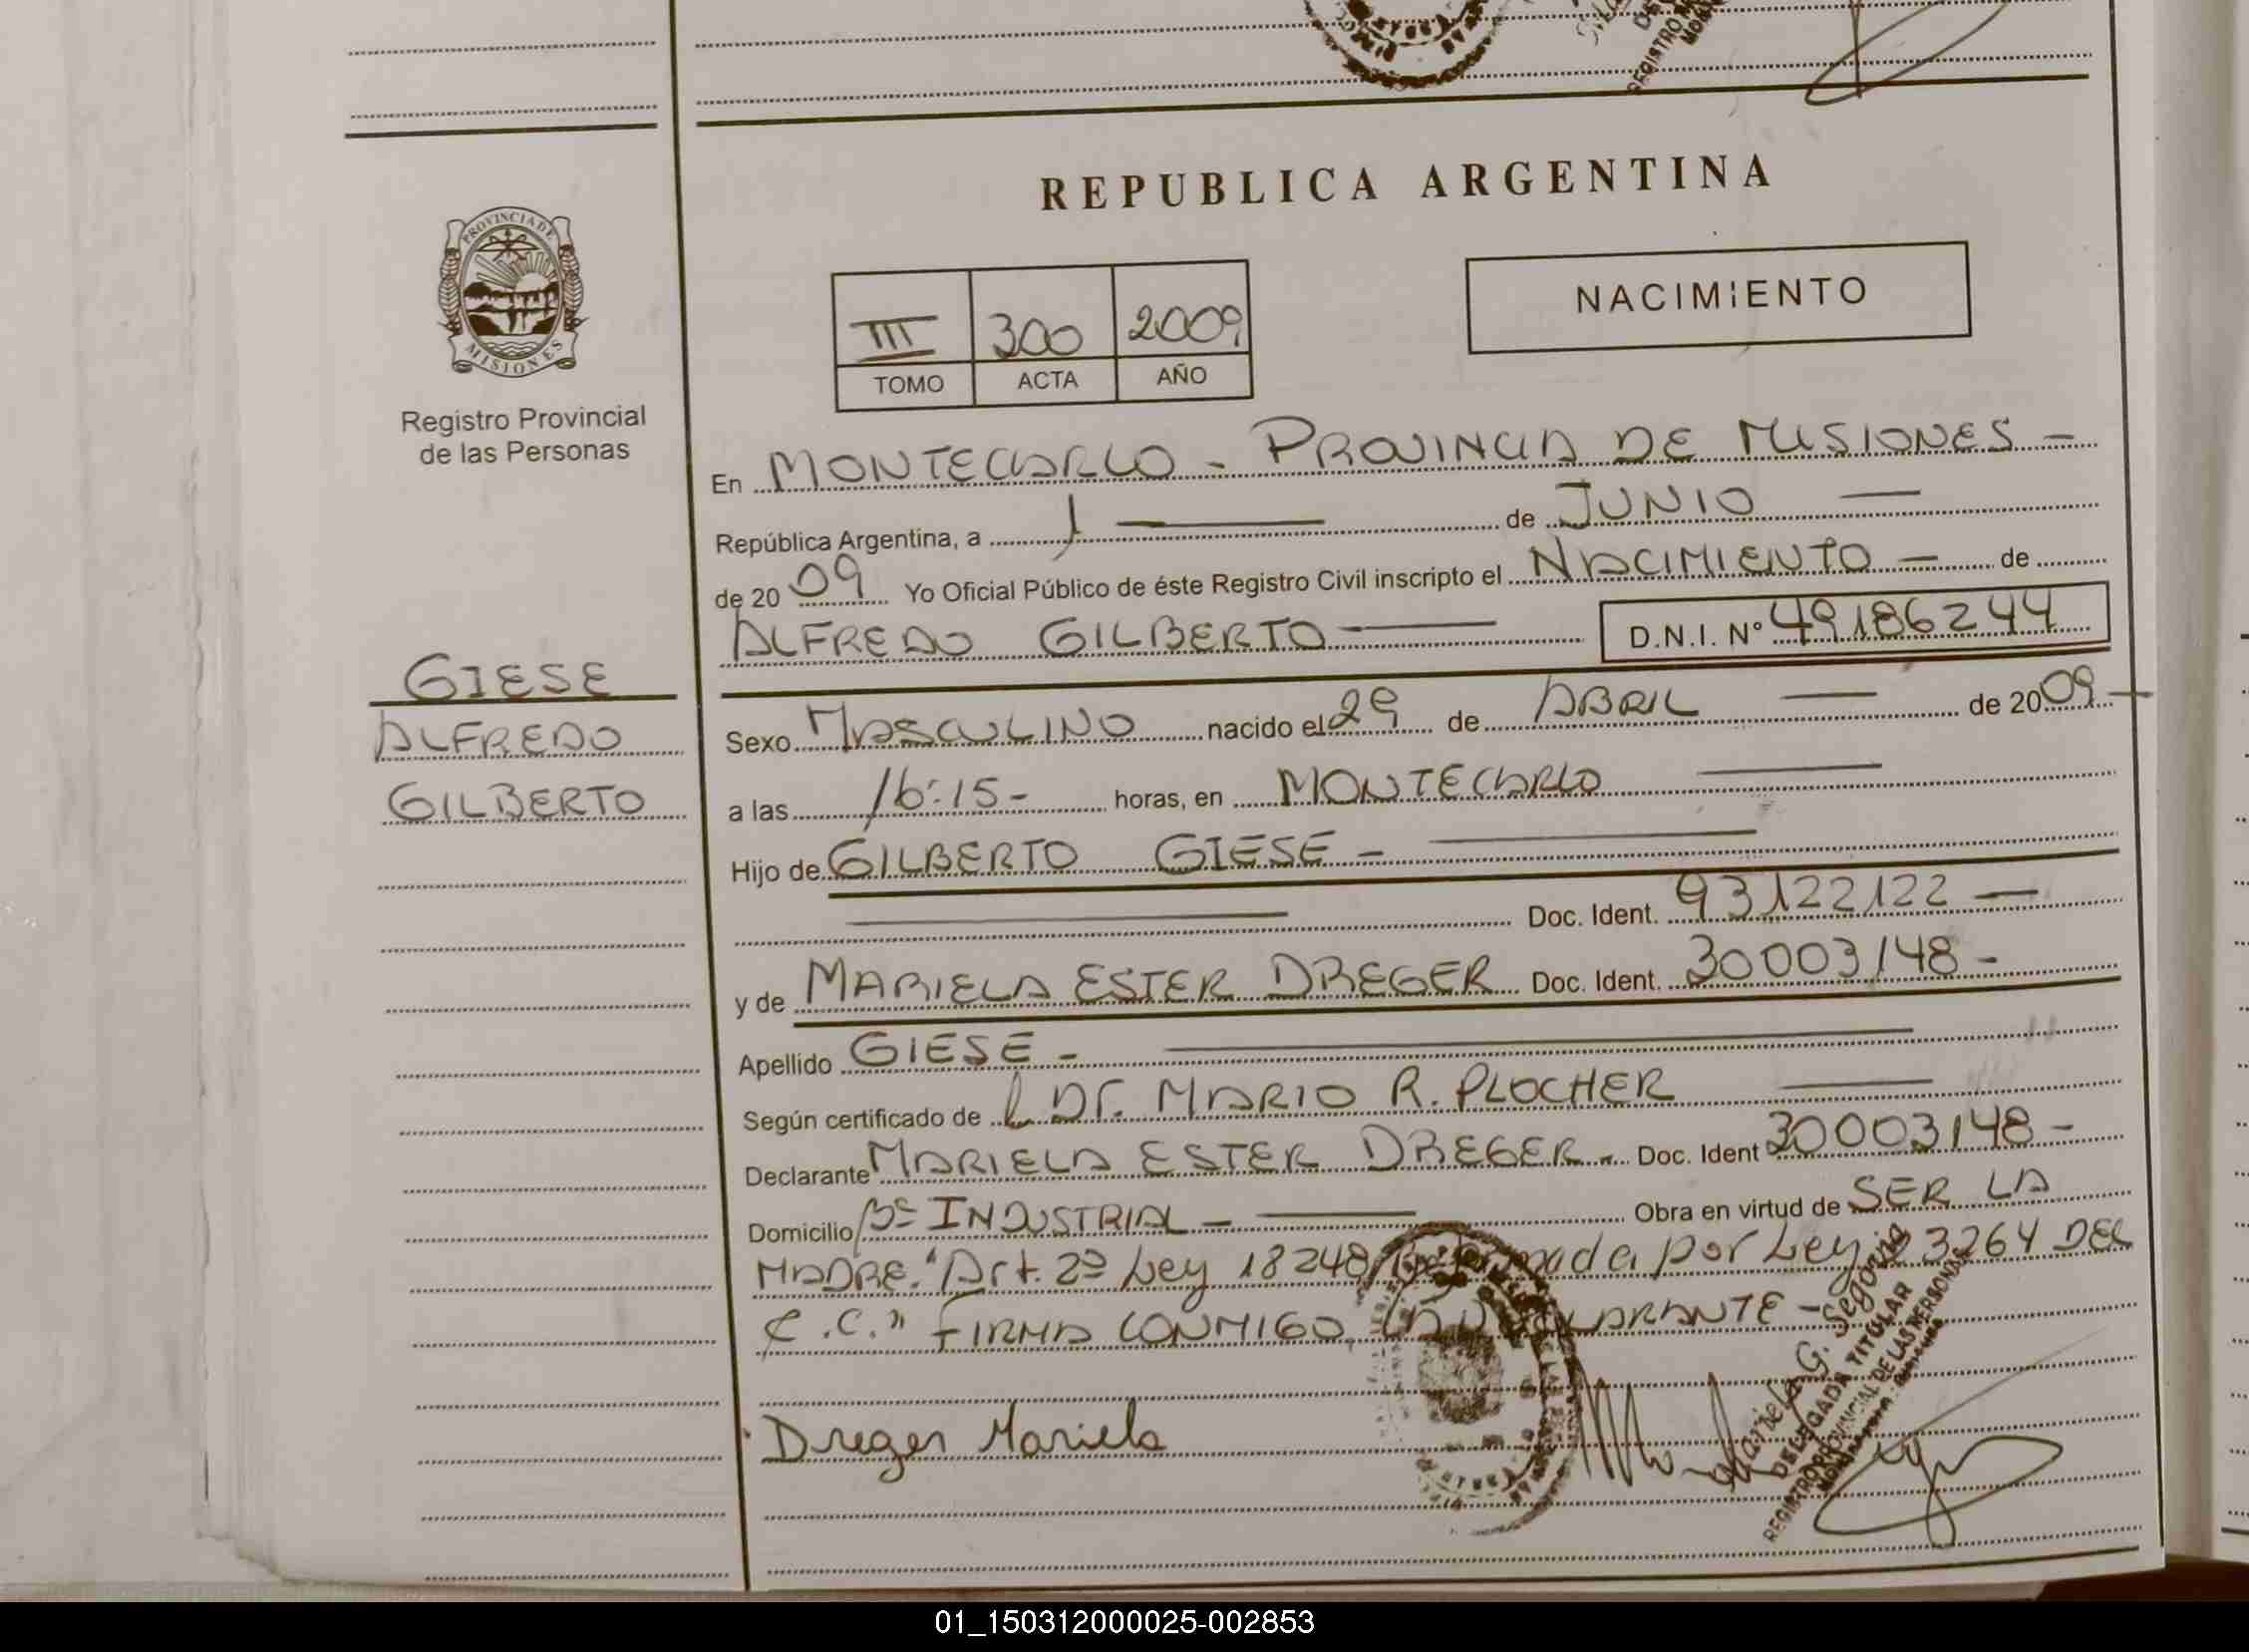 REPUBLICA ARGENTINA
PROVINCIA DE
MISIONES
Registro Provincial
de las Personas
NACIMIENTO
III 300 2009
TOMO ACTA AÑO
En MONTECARLO - PROVINCIA DE MISIONES -
República Argentina, a 1 — de JUNIO —
de 20 09 Yo Oficial Público de éste Registro Civil inscripto el NACIMIENTO — de
ALFREDO GILBERTO — D.N.I. Nº 49186244
GIESE
ALFREDO
GILBERTO
Sexo MASCULINO nacido el 29 de ABRIL — de 20 09 -
a las 16:15- horas, en MONTECARLO —
Hijo de GILBERTO GIESE - —
— Doc. Ident. 93122122 —
y de MARIELA ESTER DREGER Doc. Ident. 30003148 -
Apellido GIESE - —
Según certificado de Dr. MARIO R. PLOCHER —
Declarante MARIELA ESTER DREGER - Doc. Ident 30003148 -
Domicilio Bº INDUSTRIAL - — Obra en virtud de SER LA
MADRE. "Art. 2º Ley 18248 por Ley 23264 DEL
C.C." FIRMA CONMIGO, LA DECLARANTE -
Dreger Mariela
Mariela G. Segovia
DELEGADA TITULAR
REGISTRO PROVINCIAL DE LAS PERSONAS
01_150312000025-002853